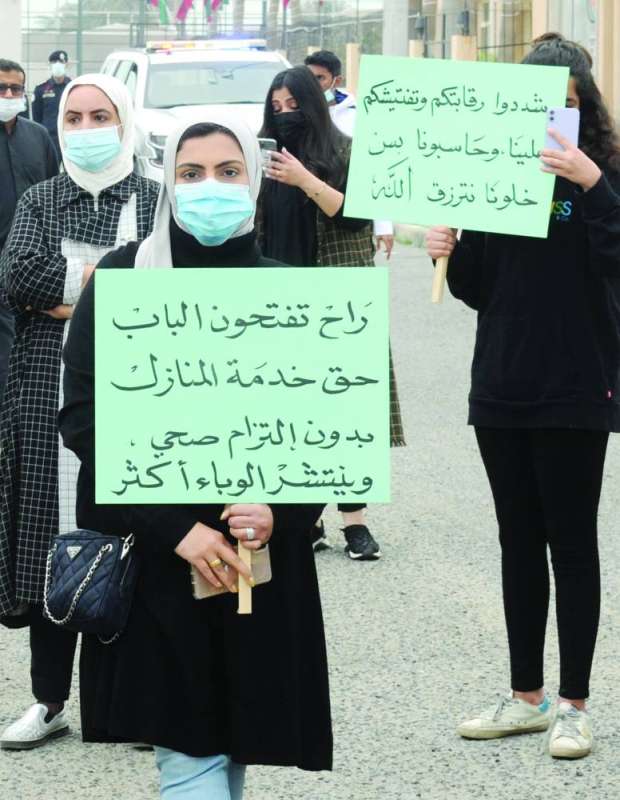 شددوا رقابتكم وتفتيشكم
علينا، وحاسبونا بس
خلونا نترزق الله
رَاح تفتحون الباب
حق خدمَة المنازل
بدون إلتزام صحي،
وينتشر الوباء أكثر